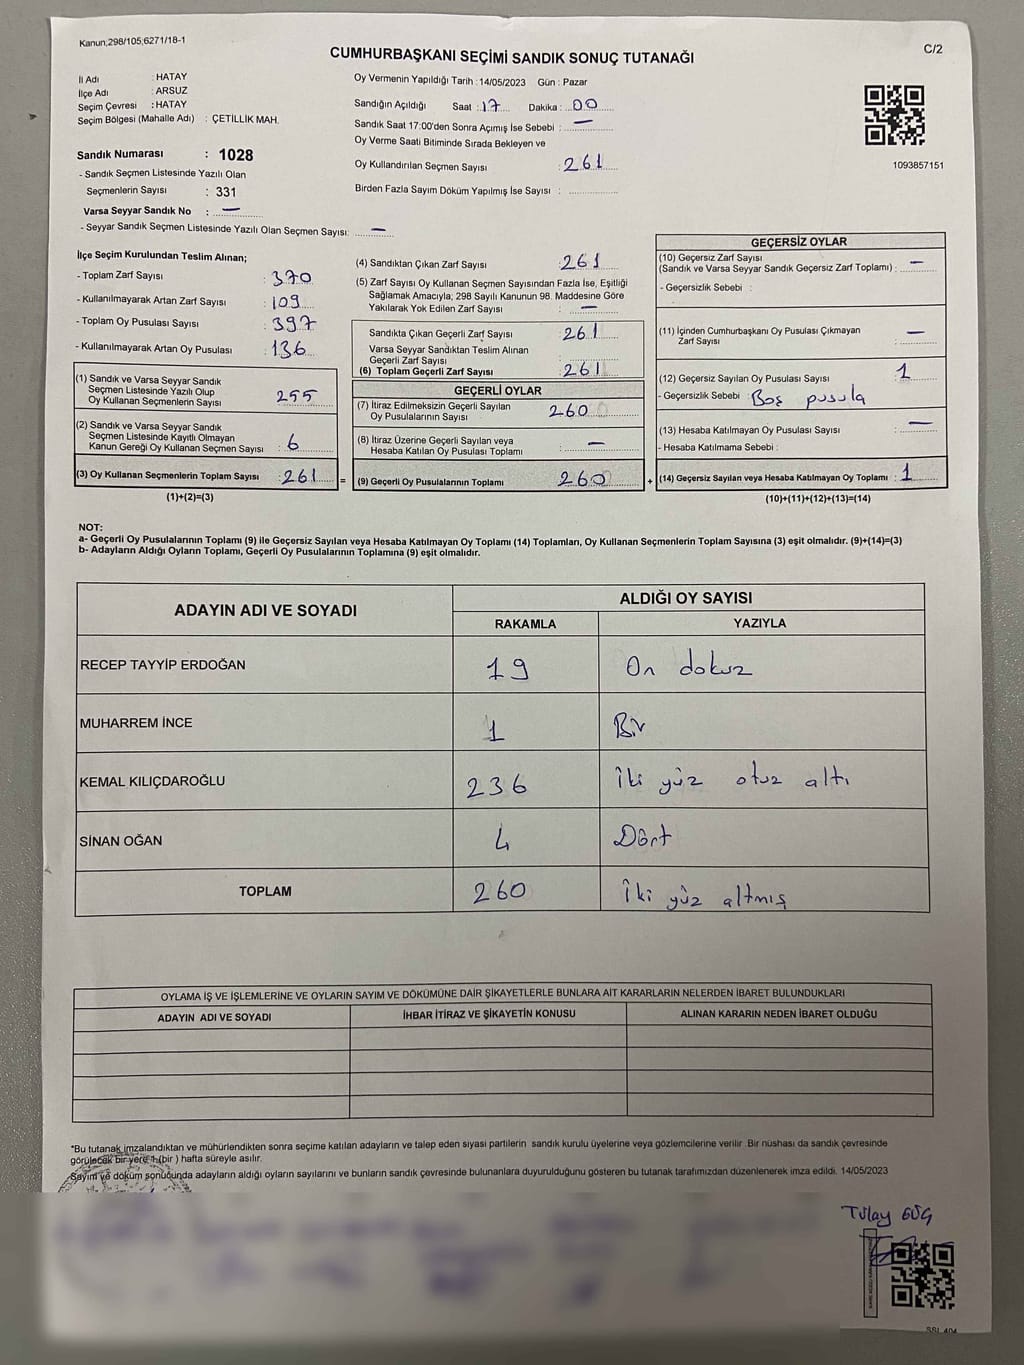 Kanun;298/105;6271/18-1
C/2
CUMHURBAŞKANI SEÇİMİ SANDIK SONUÇ TUTANAĞI
İl Adı : HATAY
İlçe Adı : ARSUZ
Seçim Çevresi : HATAY
Seçim Bölgesi (Mahalle Adı) : ÇETİLLİK MAH.
Sandık Numarası : 1028
- Sandık Seçmen Listesinde Yazılı Olan
Seçmenlerin Sayısı : 331
Varsa Seyyar Sandık No : —
- Seyyar Sandık Seçmen Listesinde Yazılı Olan Seçmen Sayısı: —
Oy Vermenin Yapıldığı Tarih : 14/05/2023 Gün : Pazar
Sandığın Açıldığı Saat : 17 Dakika : 00
Sandık Saat 17:00'den Sonra Açımış İse Sebebi : —
Oy Verme Saati Bitiminde Sırada Bekleyen ve
Oy Kullandırılan Seçmen Sayısı : 261
Birden Fazla Sayım Döküm Yapılmış İse Sayısı :
1093857151
İlçe Seçim Kurulundan Teslim Alınan;
- Toplam Zarf Sayısı : 370
- Kullanılmayarak Artan Zarf Sayısı : 109
- Toplam Oy Pusulası Sayısı : 397
- Kullanılmayarak Artan Oy Pusulası : 136
(1) Sandık ve Varsa Seyyar Sandık
Seçmen Listesinde Yazılı Olup
Oy Kullanan Seçmenlerin Sayısı : 255
(2) Sandık ve Varsa Seyyar Sandık
Seçmen Listesinde Kayıtlı Olmayan
Kanun Gereği Oy Kullanan Seçmen Sayısı : 6
(3) Oy Kullanan Seçmenlerin Toplam Sayısı : 261 =
(1)+(2)=(3)
(4) Sandıktan Çıkan Zarf Sayısı : 261
(5) Zarf Sayısı Oy Kullanan Seçmen Sayısından Fazla İse, Eşitliği
Sağlamak Amacıyla; 298 Sayılı Kanunun 98. Maddesine Göre
Yakılarak Yok Edilen Zarf Sayısı : —
Sandıkta Çıkan Geçerli Zarf Sayısı : 261
Varsa Seyyar Sandıktan Teslim Alınan
Geçerli Zarf Sayısı :
(6) Toplam Geçerli Zarf Sayısı : 261
GEÇERLİ OYLAR
(7) İtiraz Edilmeksizin Geçerli Sayılan
Oy Pusulalarının Sayısı : 260
(8) İtiraz Üzerine Geçerli Sayılan veya
Hesaba Katılan Oy Pusulası Toplamı : —
(9) Geçerli Oy Pusulalarının Toplamı : 260 +
GEÇERSİZ OYLAR
(10) Geçersiz Zarf Sayısı
(Sandık ve Varsa Seyyar Sandık Geçersiz Zarf Toplamı) : —
- Geçersizlik Sebebi :
(11) İçinden Cumhurbaşkanı Oy Pusulası Çıkmayan
Zarf Sayısı : —
(12) Geçersiz Sayılan Oy Pusulası Sayısı : 1
- Geçersizlik Sebebi : Boş pusula
(13) Hesaba Katılmayan Oy Pusulası Sayısı : —
- Hesaba Katılmama Sebebi :
(14) Geçersiz Sayılan veya Hesaba Katılmayan Oy Toplamı : 1
(10)+(11)+(12)+(13)=(14)
NOT:
a- Geçerli Oy Pusulalarının Toplamı (9) ile Geçersiz Sayılan veya Hesaba Katılmayan Oy Toplamı (14) Toplamları, Oy Kullanan Seçmenlerin Toplam Sayısına (3) eşit olmalıdır. (9)+(14)=(3)
b- Adayların Aldığı Oyların Toplamı, Geçerli Oy Pusulalarının Toplamına (9) eşit olmalıdır.
ADAYIN ADI VE SOYADI ALDIĞI OY SAYISI
RAKAMLA YAZIYLA
RECEP TAYYİP ERDOĞAN 19 On dokuz
MUHARREM İNCE 1 Bir
KEMAL KILIÇDAROĞLU 236 İki yüz otuz altı
SİNAN OĞAN 4 Dört
TOPLAM 260 İki yüz altmış
OYLAMA İŞ VE İŞLEMLERİNE VE OYLARIN SAYIM VE DÖKÜMÜNE DAİR ŞİKAYETLERLE BUNLARA AİT KARARLARIN NELERDEN İBARET BULUNDUKLARI
ADAYIN ADI VE SOYADI İHBAR İTİRAZ VE ŞİKAYETİN KONUSU ALINAN KARARIN NEDEN İBARET OLDUĞU
*Bu tutanak imzalandıktan ve mühürlendikten sonra seçime katılan adayların ve talep eden siyasi partilerin sandık kurulu üyelerine veya gözlemcilerine verilir. Bir nüshası da sandık çevresinde
görülecek bir yere 1 (bir ) hafta süreyle asılır.
Sayım ve döküm sonucunda adayların aldığı oyların sayılarını ve bunların sandık çevresinde bulunanlara duyurulduğunu gösteren bu tutanak tarafımızdan düzenlenerek imza edildi. 14/05/2023
Tülay GÜÇ
SSL 404